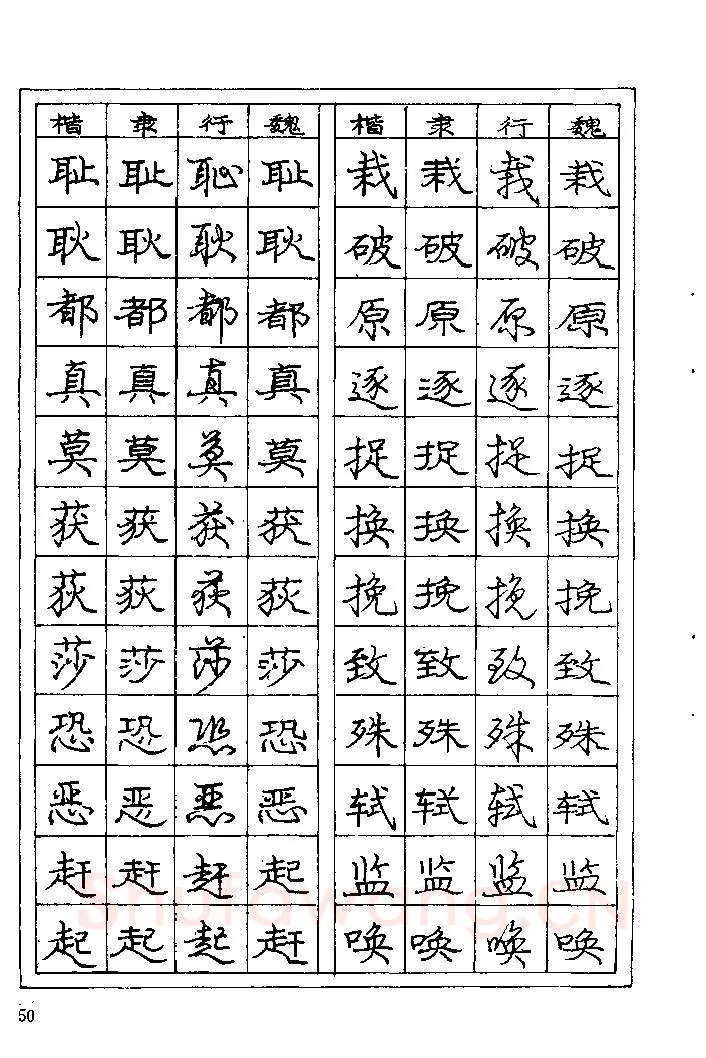 楷 隶 行 魏 楷 隶 行 魏
耻 耻 耻 耻 栽 栽 栽 栽
耿 耿 耿 耿 破 破 破 破
都 都 都 都 原 原 原 原
真 真 真 真 逐 逐 逐 逐
莫 莫 莫 莫 捉 捉 捉 捉
获 获 获 获 换 换 换 换
荻 荻 荻 荻 挽 挽 挽 挽
莎 莎 莎 莎 致 致 致 致
恐 恐 恐 恐 殊 殊 殊 殊
恶 恶 恶 恶 轼 轼 轼 轼
赶 赶 赶 起 监 监 监 监
起 起 起 赶 唤 唤 唤 唤
Shufawang.CN
50